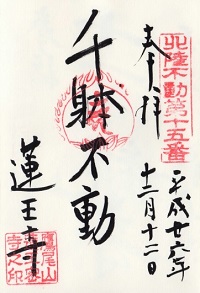 北陸不動第十五番
奉拝
平成廿六年
十二月十二日
千躰不動
蓮王寺